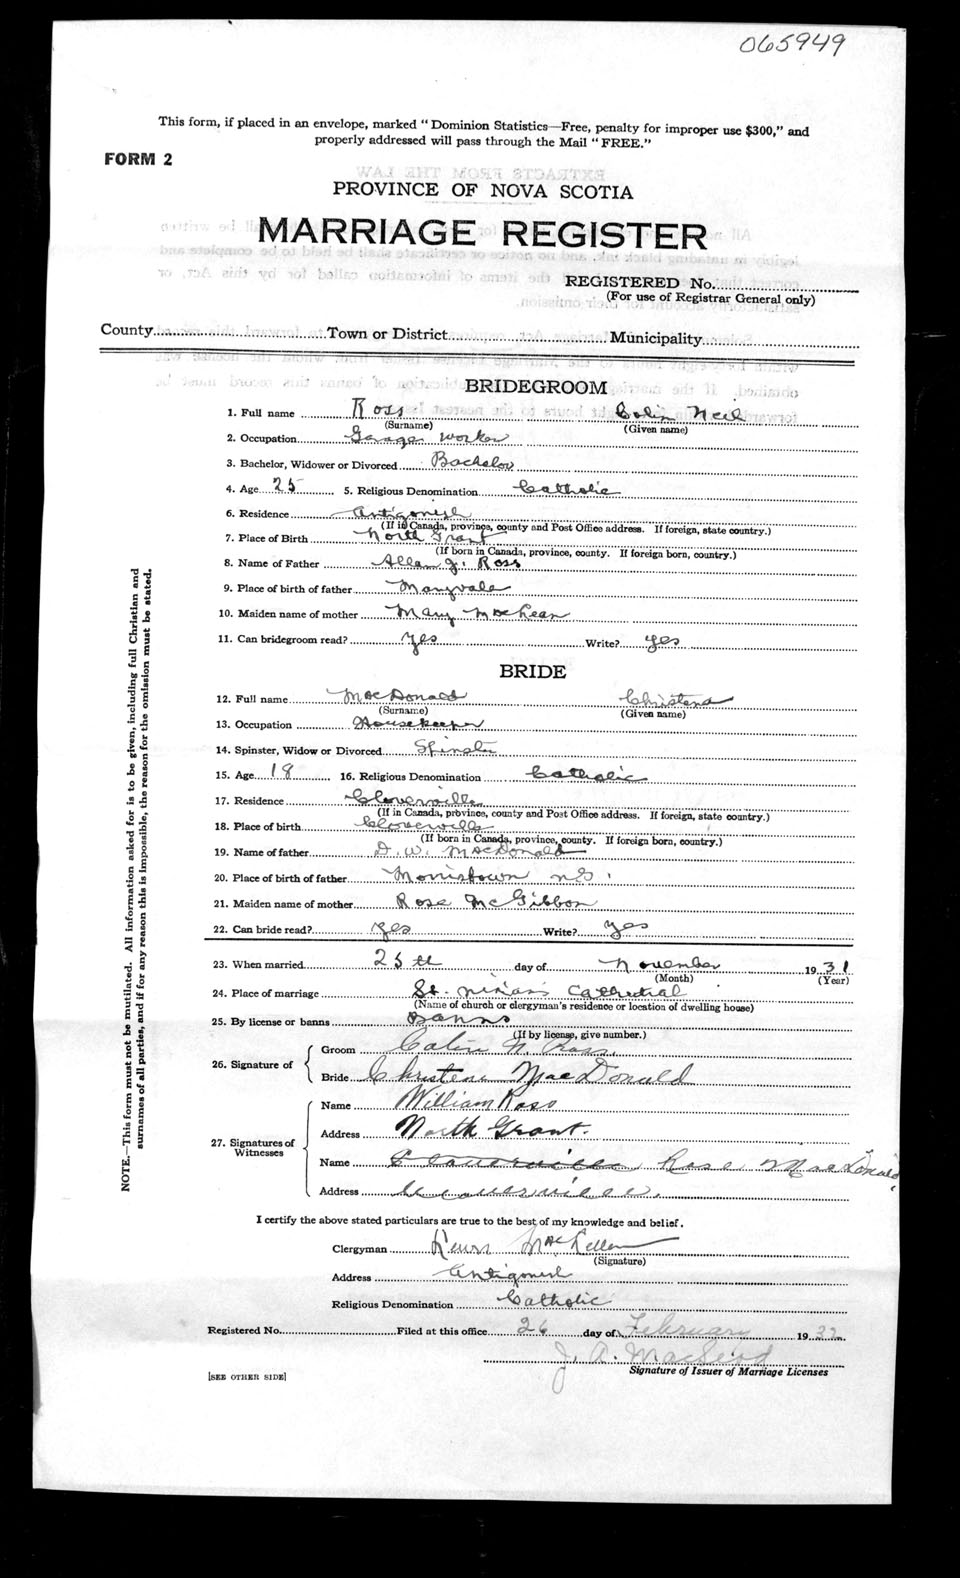 065949
This form, if placed in an envelope, marked "Dominion Statistics—Free, penalty for improper use $300," and
properly addressed will pass through the Mail "FREE."
FORM 2
PROVINCE OF NOVA SCOTIA
MARRIAGE REGISTER
REGISTERED No.
(For use of Registrar General only)
County Town or District Municipality
BRIDEGROOM
1. Full name Ross Colin Neil
(Surname) (Given name)
2. Occupation Garage Worker
3. Bachelor, Widower or Divorced Bachelor
4. Age 25 5. Religious Denomination Catholic
6. Residence Antigonish
(If in Canada, province, county and Post Office address. If foreign, state country.)
7. Place of Birth North Grant
(If born in Canada, province, county. If foreign born, country.)
8. Name of Father Allan J. Ross
9. Place of birth of father Maryvale
10. Maiden name of mother Mary MacLean
11. Can bridegroom read? yes Write? yes
BRIDE
12. Full name MacDonald Christena
(Surname) (Given name)
13. Occupation Housekeeper
14. Spinster, Widow or Divorced Spinster
15. Age 18 16. Religious Denomination Catholic
17. Residence Cloverville
(If in Canada, province, county and Post Office address. If foreign, state country.)
18. Place of birth Cloverville
(If born in Canada, province, county. If foreign born, country.)
19. Name of father D. W. MacDonald
20. Place of birth of father Morristown N.S.
21. Maiden name of mother Rose McGibbon
22. Can bride read? yes Write? yes
23. When married 25th day of November 1931
(Month) (Year)
24. Place of marriage St. Ninian's Cathedral
(Name of church or clergyman's residence or location of dwelling house)
25. By license or banns Banns
(If by license, give number.)
26. Signature of
Groom Colin N. Ross
Bride Christena MacDonald
27. Signatures of Witnesses
Name William Ross
Address North Grant.
Name Cloverville Rose MacDonald
Address Cloverville.
I certify the above stated particulars are true to the best of my knowledge and belief.
Clergyman MacLellan
(Signature)
Address Antigonish
Religious Denomination Catholic
Registered No. Filed at this office 26 day of February 1932
J. A. MacLeod
Signature of Issuer of Marriage Licenses
[SEE OTHER SIDE]
NOTE.—This form must not be mutilated. All information asked for is to be given, including full Christian and
surnames of all parties, and if for any reason this is impossible, the reason for the omission must be stated.